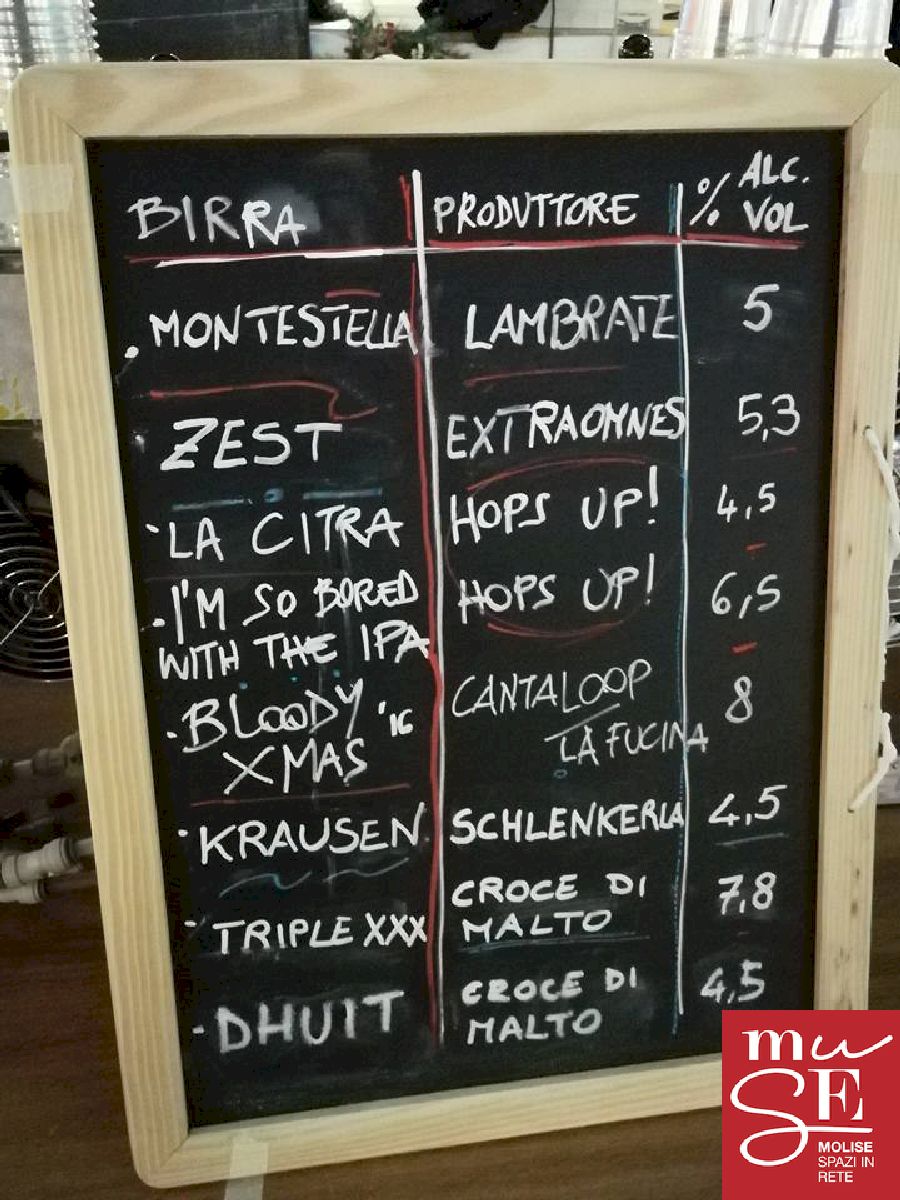 BIRRA PRODUTTORE % ALC. VOL
. MONTESTELLA LAMBRATE 5
ZEST EXTRAOMNES 5,3
· LA CITRA HOPS UP! 4,5
. I'M SO BORED WITH THE IPA HOPS UP! 6,5
. BLOODY XMAS CANTALOOP LA FUCINA 8
· KRAUSEN SCHLENKERLA 4,5
· TRIPLE XXX CROCE DI MALTO 7,8
- DHUIT CROCE DI MALTO 4,5
muSE
MOLISE
SPAZI IN
RETE